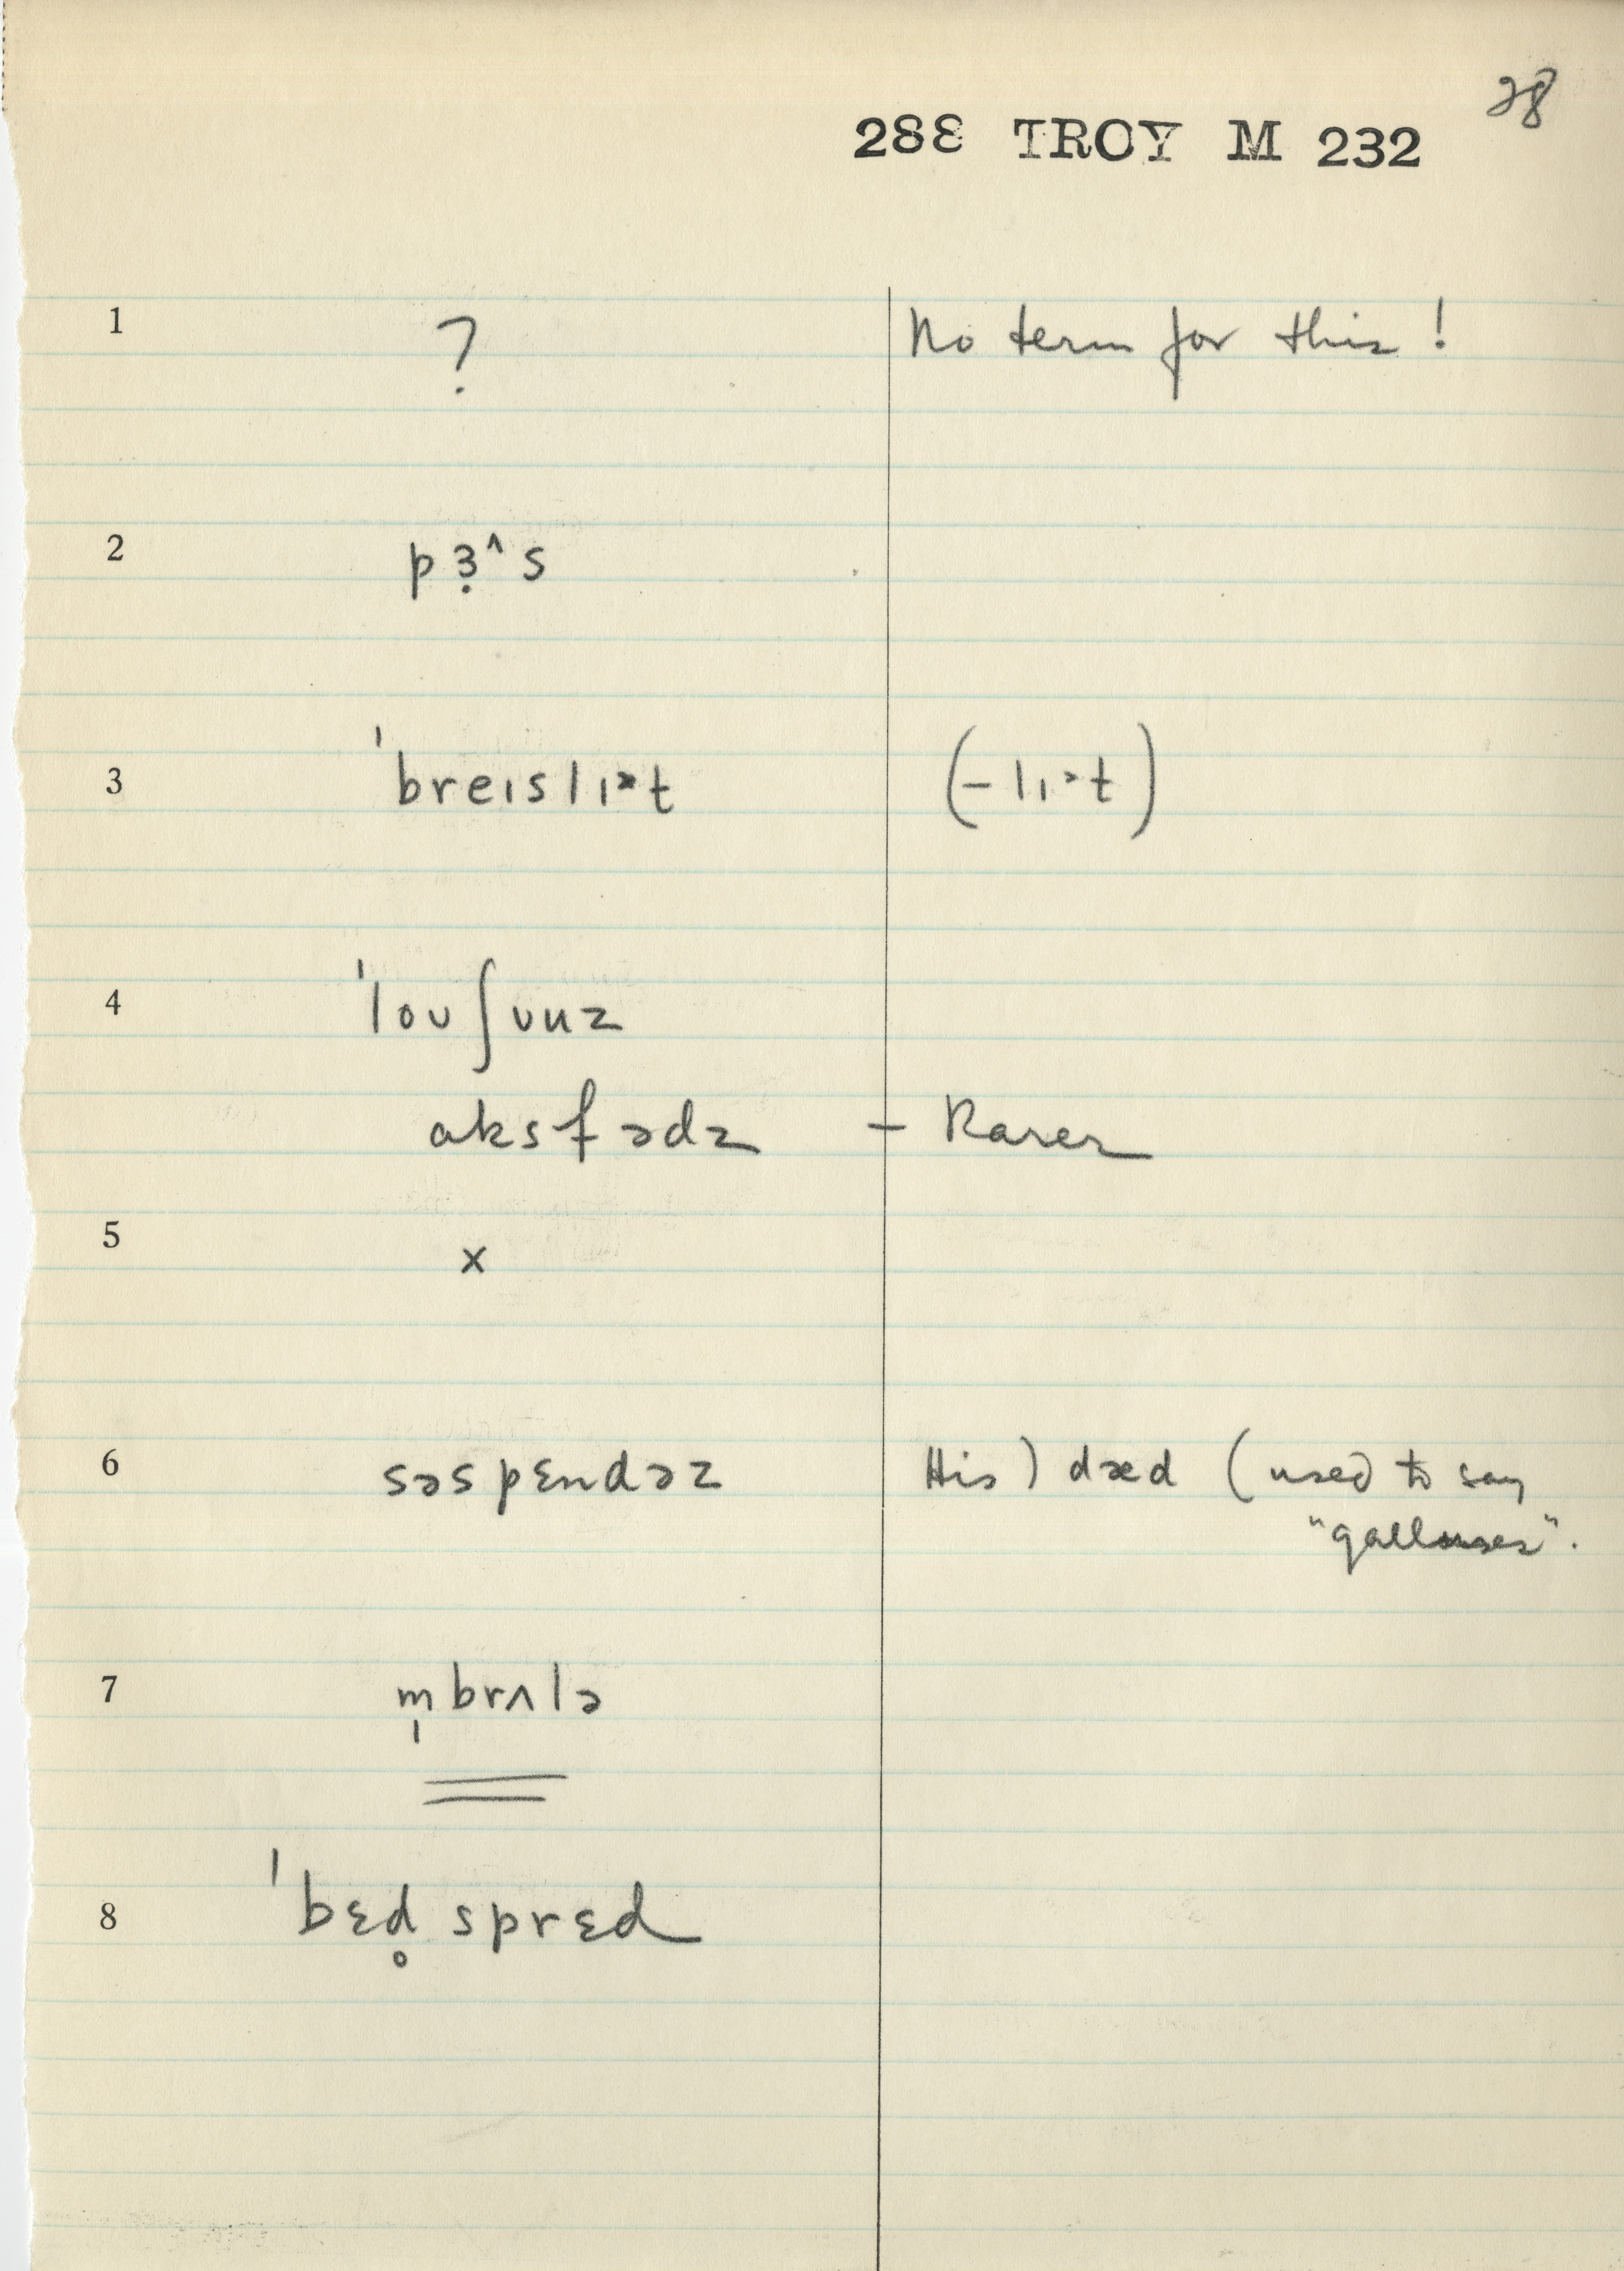 28
288 TROY M 232
1 ? No term for this !
2 pɜ̣^s
3 ˈbreɪslɪ˃t (-lɪ˃t)
4 ˈloʊʃʊuz
ɑksfədz – Rarer
5 x
6 səspɛndəz His ) dæd ( used to say
"gallouses".
7 m̩brʌlə
8 ˈbɛd̥sprɛd